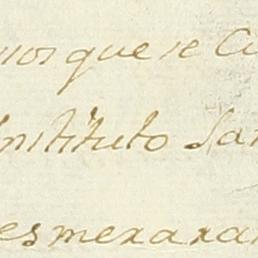 que se
Instituto San
esmeraran